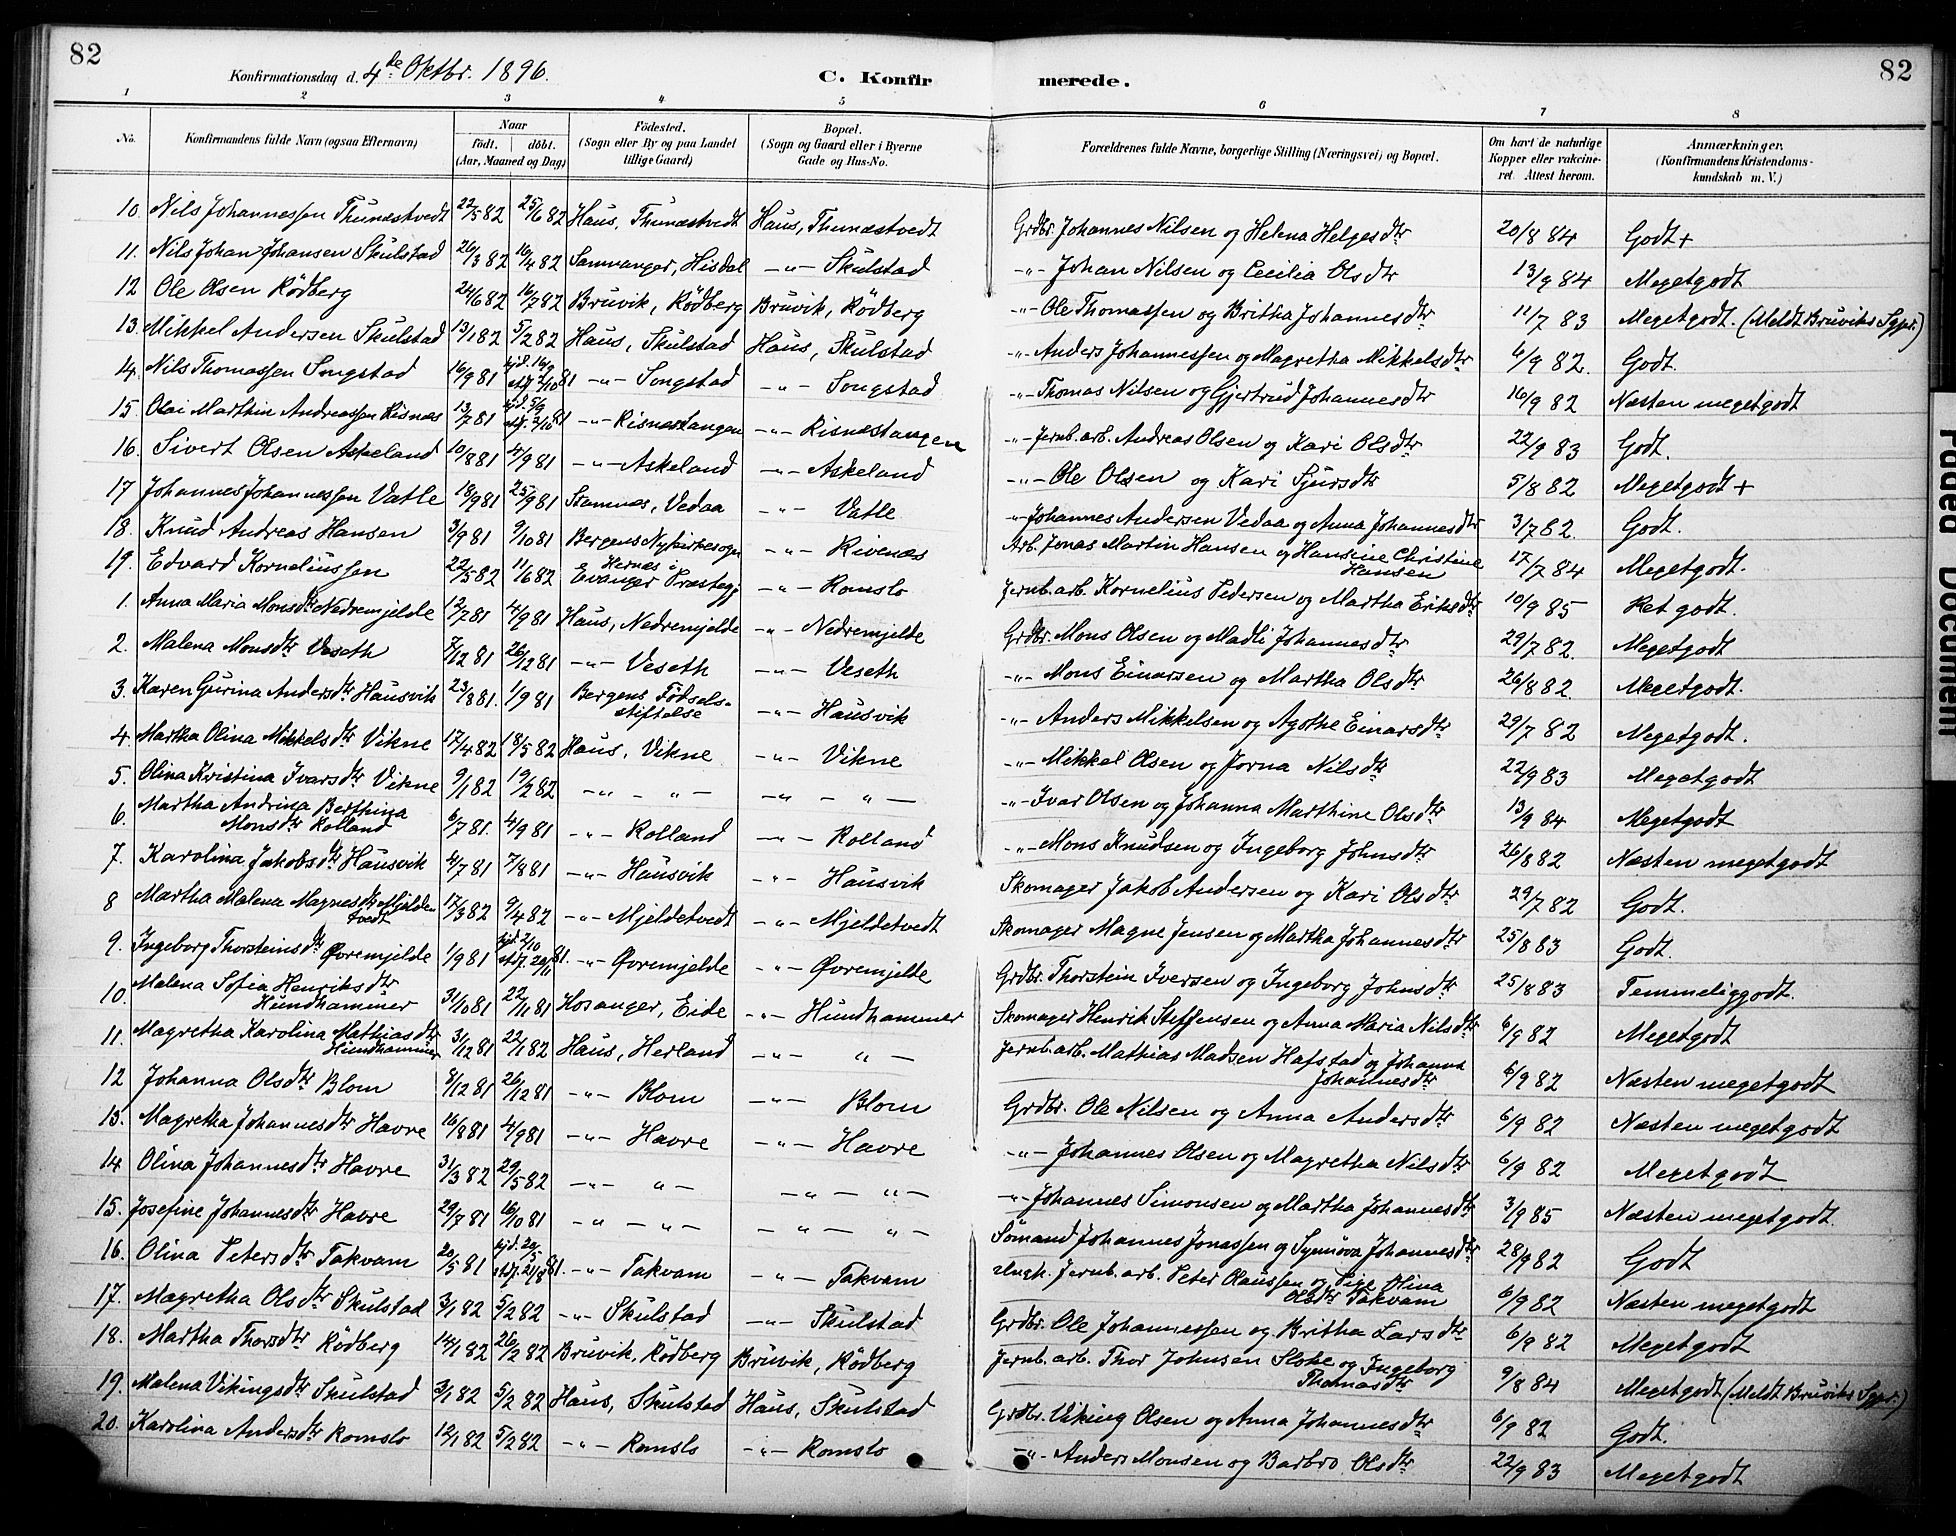 82
Konfirmationsdag d. 4de Oktbr. 1896.
C. Konfirmerede.
82
1 2 3 4 5 6 7 8
No. | Konfirmandens fulde Navn (ogsaa Efternavn) | Naar født. døbt. (Aar, Maaned og Dag) | Födested. (Sogn eller By og paa Landet tillige Gaard) | Bopæl. (Sogn og Gaard eller i Byerne Gade og Hus-No. | Forældrenes fulde Navne, borgerlige Stilling (Næringsvei) og Bopæl. | Om havt de naturlige Kopper eller vakcineret. Attest herom. | Anmærkninger. (Konfirmandens Kristendomskundskab m. V.)
10. Nils Johannessen Thunæstvedt | 22/5 82 | 25/6 82 | Haus, Thunæstvedt | Haus, Thunæstvedt | Grdbr. Johannes Nilsen og Helena Helgesdtr | 20/8 84 | Godt +
11. Nils Johan Johansen Skulstad | 26/3 82 | 16/4 82 | Samnanger, Hisdal | -"- Skulstad | -"- Johan Nilsen og Cecilia Olsdtr | 13/9 84 | Megetgodt
12 Ole Olsen Rödberg | 24/6 82 | 16/7 82 | Bruvik, Rödberg | Bruvik, Rödberg | -"- Ole Thomassen og Britha Johannesdtr | 11/7 83 | Megetgodt. (Meldt Bruviks Sgpr.)
13. Mikkel Andersen Skulstad | 13/1 82 | 5/2 82 | Haus, Skulstad | Haus, Skulstad | -"- Anders Johannessen og Magretha Mikkelsdtr | 6/9 82. | Godt.
14. Nils Thomassen Songstad | 16/9 81 | hjd. 16/9 stdf. 2/10 81 | -"- Songstad | -"- Songstad | -"- Thomas Nilsen og Gjertrud Johannesdtr | 16/9 82 | Næsten megetgodt
15 Olai Marthin Andreassen Risnæs | 13/7 81 | hjd. 5/9 stdf. 2/10 81 | -"- Risnæstangen | -"- Risnæstangen | -"- Jernb. arb. Andreas Olsen og Kari Olsdtr | 22/9 83 | Godt.
16. Sivert Olsen Askeland | 10/8 81 | 4/9 81 | -"- Askeland | -"- Askeland | -"- Ole Olsen og Kari Sjursdtr | 5/8 82 | Megetgodt +
17 Johannes Johannessen Vatle | 18/9 81 | 25/9 81 | Stamnes, Vedaa | -"- Vatle | -"- Johannes Andersen Vedaa og Anna Johannesdtr | 3/7 82. | Godt.
18. Knud Andreas Hansen | 3/9 81 | 9/10 81 | Bergens Nykirkesogn | -"- Rivenæs | Arb. Jonas Martin Hansen og Hansine Christine Hansen | 17/7 84 | Megetgodt.
19. Edvard Korneliussen | 22/5 82 | 11/6 82 | Hernæs i Evanger Præstegj | -"- Romslo | Jernb. arb. Kornelius Pedersen og Martha Eriksdtr | 10/9 85 | Ret godt.
1. Anna Maria Monsdtr Nedremjelde | 12/7 81 | 4/9 81 | Haus, Nedremjelde | -"- Nedremjelde | Grdbr. Mons Olsen og Madli Johannesdtr | 29/7 82. | Megetgodt
2. Malena Monsdtr Veseth | 7/12 81 | 26/12 81 | -"- Veseth | -"- Veseth | -"- Mons Einarsen og Martha Olsdtr | 26/8 82 | Megetgodt.
3. Karen Gurina Andersdtr Hausvik | 23/8 81. | 1/9 81 | Bergens Födselsstiftelse | -"- Hausvik | -"- Anders Mikkelsen og Agothe Einarsdtr | 29/7 82 | Megetgodt.
4. Martha Olina Mikkelsdtr Vikne | 17/4 82 | 18/5 82 | Haus, Vikne | -"- Vikne | -"- Mikkel Olsen og Jorna Nilsdtr | 22/9 83 | Megetgodt
5. Olina Kristina Ivarsdtr Vikne | 9/1 82 | 19/2 82 | -"- -"- | -"- -"- | -"- Ivar Olsen og Johanna Marthine Olsdtr | 13/9 84 | Megetgodt
6. Martha Andrina Berthina Monsdtr Rolland | 6/7 81. | 4/9 81 | -"- Rolland | -"- Rolland | -"- Mons Knudsen og Ingeborg Johnsdtr | 26/8 82 | Næsten megetgodt
7. Karolina Jakobsdtr Hausvik | 4/7 81 | 7/8 81 | -"- Hausvik | -"- Hausvik | Skomager Jakob Andersen og Kari Olsdtr | 29/7 82 | Godt.
8 Martha Malena Magnesdtr Mjeldetvedt | 17/3 82 | 9/4 82 | -"- Mjeldetvedt | -"- Mjeldetvedt | Skomager Magne Jensen og Martha Johannesdtr | 25/8 83 | Godt.
9. Ingeborg Thorsteinsdtr Øvremjelde | 1/9 81 | hjd. 2/10 stdf. 20/11 81. | -"- Øvremjelde | -"- Øvremjelde | Grdbr. Thorstein Iversen og Ingeborg Johnsdtr | 25/8 83 | Temmeliggodt.
10. Malena Sofia Henriksdtr Hundhammer | 31/10 81 | 22/11 81 | Hosanger, Eide | -"- Hundhammer | Skomager Henrik Steffensen og Anna Maria Nilsdtr | 6/9 82 | Megetgodt
11. Magretha Karolina Mathiasdtr Hundhammer | 31/12 81 | 22/1 82 | Haus, Herland | -"- " - | Jernb. arb. Mathias Madsen Hafstad og Johanna Johannesdtr | 6/9 82 | Næsten megetgodt
12 Johanna Olsdtr Blom | 8/12 81 | 26/12 81 | -"- Blom | -"- Blom | Grdbr. Ole Nilsen og Anna Andersdtr | 6/9 82 | Næsten megetgodt
13. Magretha Johannesdtr Havre | 16/8 81 | 4/9 81 | -"- Havre | -"- Havre | -"- Johannes Olsen og Magretha Nilsdtr | 6/9 82 | Megetgodt
14 Olina Johannesdtr Havre | 31/3 82 | 29/5 82 | -"- "- | -"- "- | -"- Johannes Simonsen og Martha Johannesdtr | 3/9 85 | Næsten megetgodt.
15. Josefine Johannesdtr Havre | 29/7 81 | 16/10 81 | -"- "- | -"- "- | Sömand Johannes Jonassen og Synnöva Johannesdtr | 28/9 82 | Godt
16. Olina Petersdtr Takvam | 20/5 81 | hjd. 20/5 stdf. 21/8 81. | -"- Takvam | -"- Takvam | Ungk. Jernb. arb. Peter Olaussen og Pige Olina Olsdtr Takvam | 6/9 82 | Næsten megetgodt
17. Magretha Olsdtr Skulstad | 3/1 82 | 5/2 82 | -"- Skulstad | -"- Skulstad | Grdbr. Ole Johannessen og Britha Larsdtr | 6/9 82 | Megetgodt
18. Martha Thorsdtr Rödberg | 14/1 82 | 26/2 82 | Bruvik, Rödberg | Bruvik, Rödberg | Jernb. arb. Thor Johnsen og Ingeborg Thomasdtr | 9/8 84 | Megetgodt (Meldt Bruviks Sgpr.)
19. Malena Vikingsdtr Skulstad | 3/1 82 | 5/2 82 | Haus, Skulstad | Haus, Skulstad | Grdbr. Viking Olsen og Anna Johannesdtr | 6/9 82 | Godt.
20. Karolina Andersdtr Romslo | 12/1 82 | 5/2 82 | -"- Romslo | -"- Romslo | -"- Anders Monsen og Barbro Olsdtr | 22/9 83 | Megetgodt
Faded Document